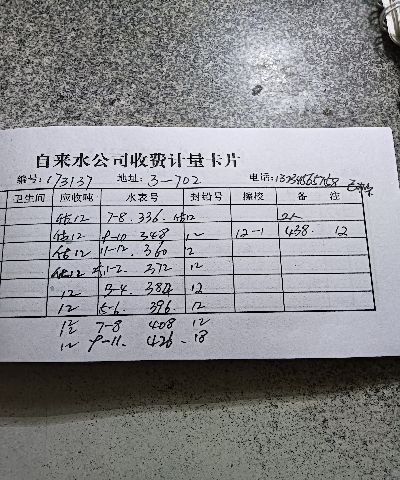 自来水公司收费计量卡片
编号:173137 地址:3-702 电话:13234565768
卫生间 应收吨 水表号 封铅号 换校 备 注
估12 7-8. 336. 估12 2人
估12 9-10 348 12 12-1 438. 12
估12 11-12. 360 12
估12 1-2 372 12
12 3-4. 384 12
12 5-6. 396. 12
12 7-8 408 12
12 9-11. 426 18